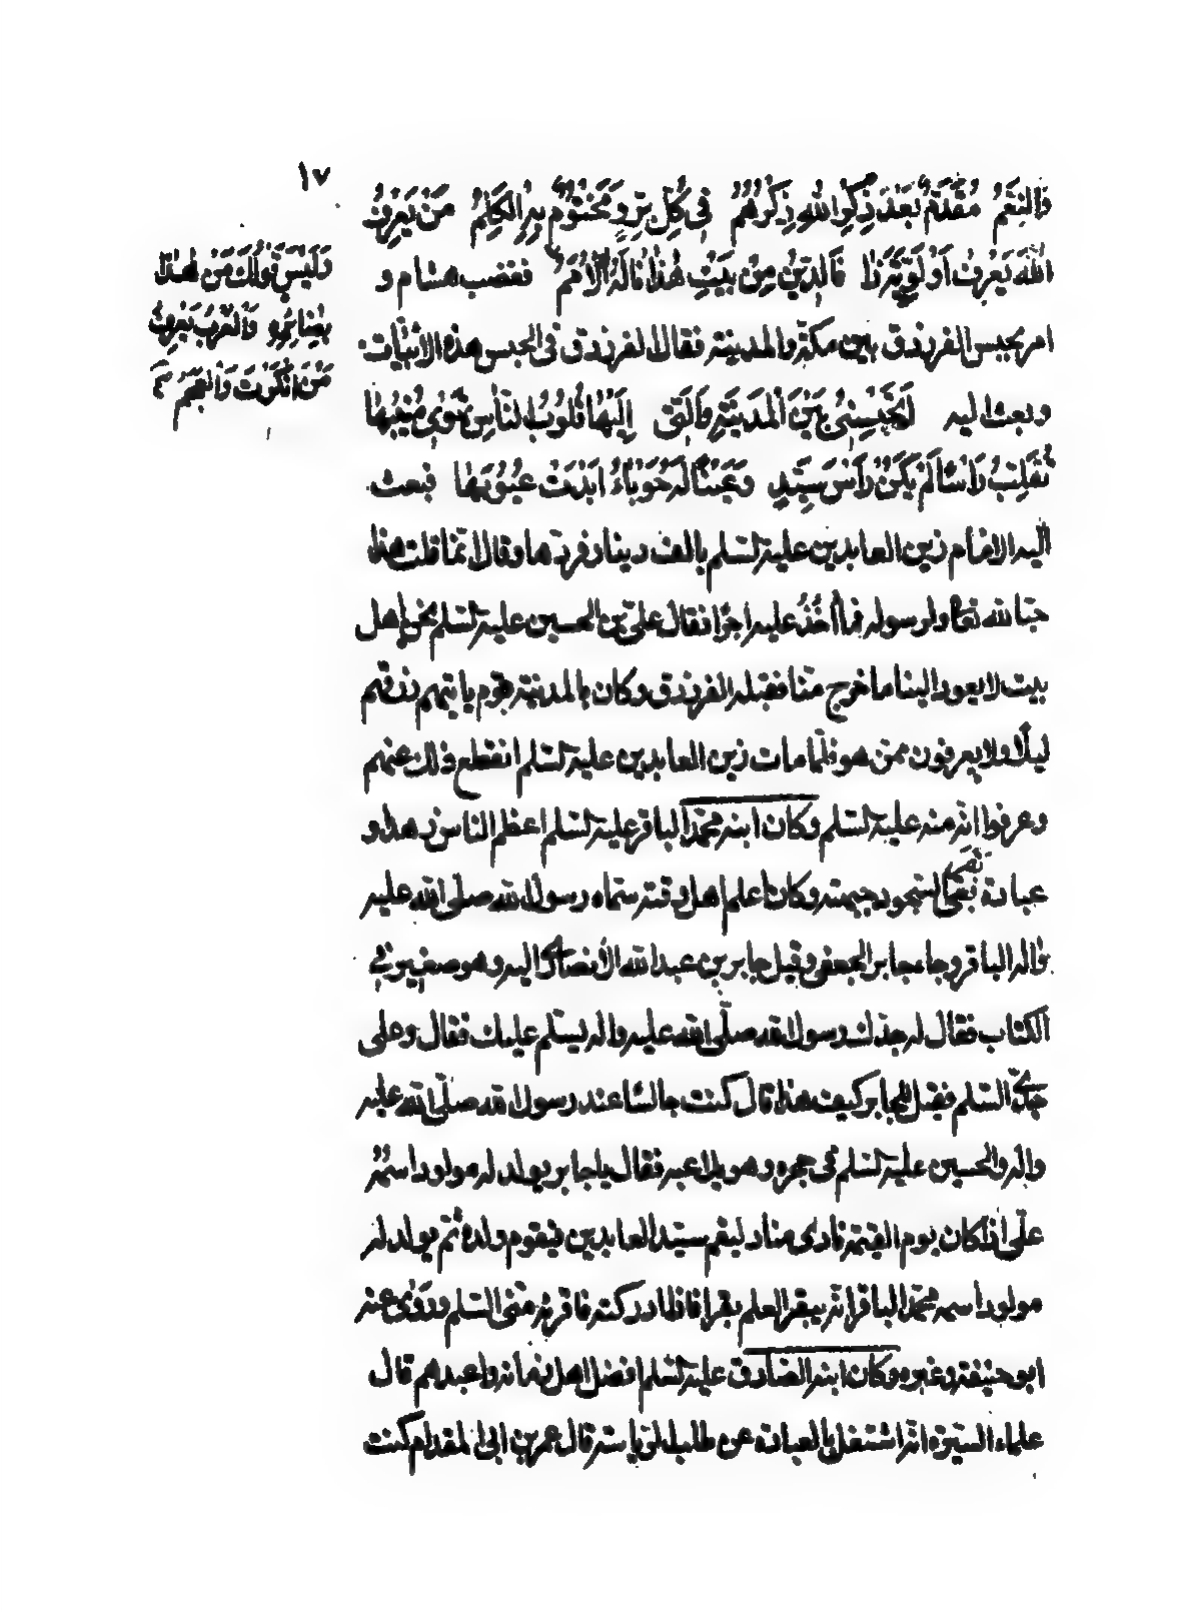 ١٧
وَالنِّعَمُ مُقَدَّمٌ بَعْدَ ذِكْرِ اللهِ ذِكْرُهُمْ فِي كُلِّ بِرٍّ وَمَخْتُومٌ بِهِ الْكَلِمُ مَنْ يَعْرِفُ
اللهَ يَعْرِفُ اَوَّلِيَّةَ ذَا فَالدِّينُ مِنْ بَيْتِ هٰذَا نَالَهُ الْاُمَمُ فغضب هشام و
امر بحبس الفرزدق بين مكّة والمدينة فقال الفرزدق في الحبس هذه الابيات
وبعث اليه اَتَحْبِسُنِي بَيْنَ الْمَدِينَةِ وَالَّتِي اِلَيْهَا قُلُوبُ النَّاسِ تَهْوٰى مُنِيبُهَا
تُقَلِّبُ رَاْسًا لَمْ يَكُنْ رَاْسَ سَيِّدٍ وَعَيْنًا لَهُ حَوْلَاءُ بَادَتْ عُيُوبُهَا فبعث
اليه الامام زين العابدين عليه السّلم بالف دينار فردّها وقال انّما قلت هذا
حبّا لله تعالى ولرسوله فما اٰخُذُ عليه اجرًا فقال عليّ بن الحسين عليه السّلم نحن اهل
بيت لا يعود الينا ما خرج منّا فقبله الفرزدق وكان بالمدينة قوم ياتيهم رزقهم
ليلًا ولا يعرفون ممّن هو فلمّا مات زين العابدين عليه السّلم انقطع ذلك عنهم
وعرفوا انّه منه عليه السّلم وكان ابنه محمّد الباقر عليه السّلم اعظم الناس زهدًا و
عبادة بقر السّجود جبهته وكان اعلم اهل وقته سمّاه رسول الله صلّى الله عليه
واٰله الباقر وجاء جابر الجعفي وقيل جابر بن عبدالله الانصاري اليه وهو صغير في
الكتّاب فقال له جدّك رسول الله صلّى الله عليه واٰله يسلّم عليك فقال وعلى
جدّي السّلم فقيل لجابر كيف هذا قال كنت جالسًا عند رسول الله صلّى الله عليه
واٰله والحسين عليه السّلم في حجره وهو يلاعبه فقال يا جابر يولد له مولود اسمُهُ
عليّ اذا كان يوم القيمة نادى مناد ليقم سيّد العابدين فيقوم ولده ثُمّ يولد له
مولود اسمه محمّد الباقر انّه يبقر العلم بقرا فاذا ادركته فاقرئه منّي السّلم وروى عنه
ابو حنيفة وغيره وكان ابنه الصّادق عليه السّلم افضل اهل زمانه واعبدهم قال
علماء السّيرة انّه اشتغل بالعبادة عن طلب الرّياسة قال عمر بن ابي المقدام كنت
وَلَيْسَ قَوْلُكَ مَنْ هٰذَا
بِضَائِرِهِ وَالْعَرَبُ تَعْرِفُ
مَنْ اَنْكَرْتَ وَالْعَجَمُ